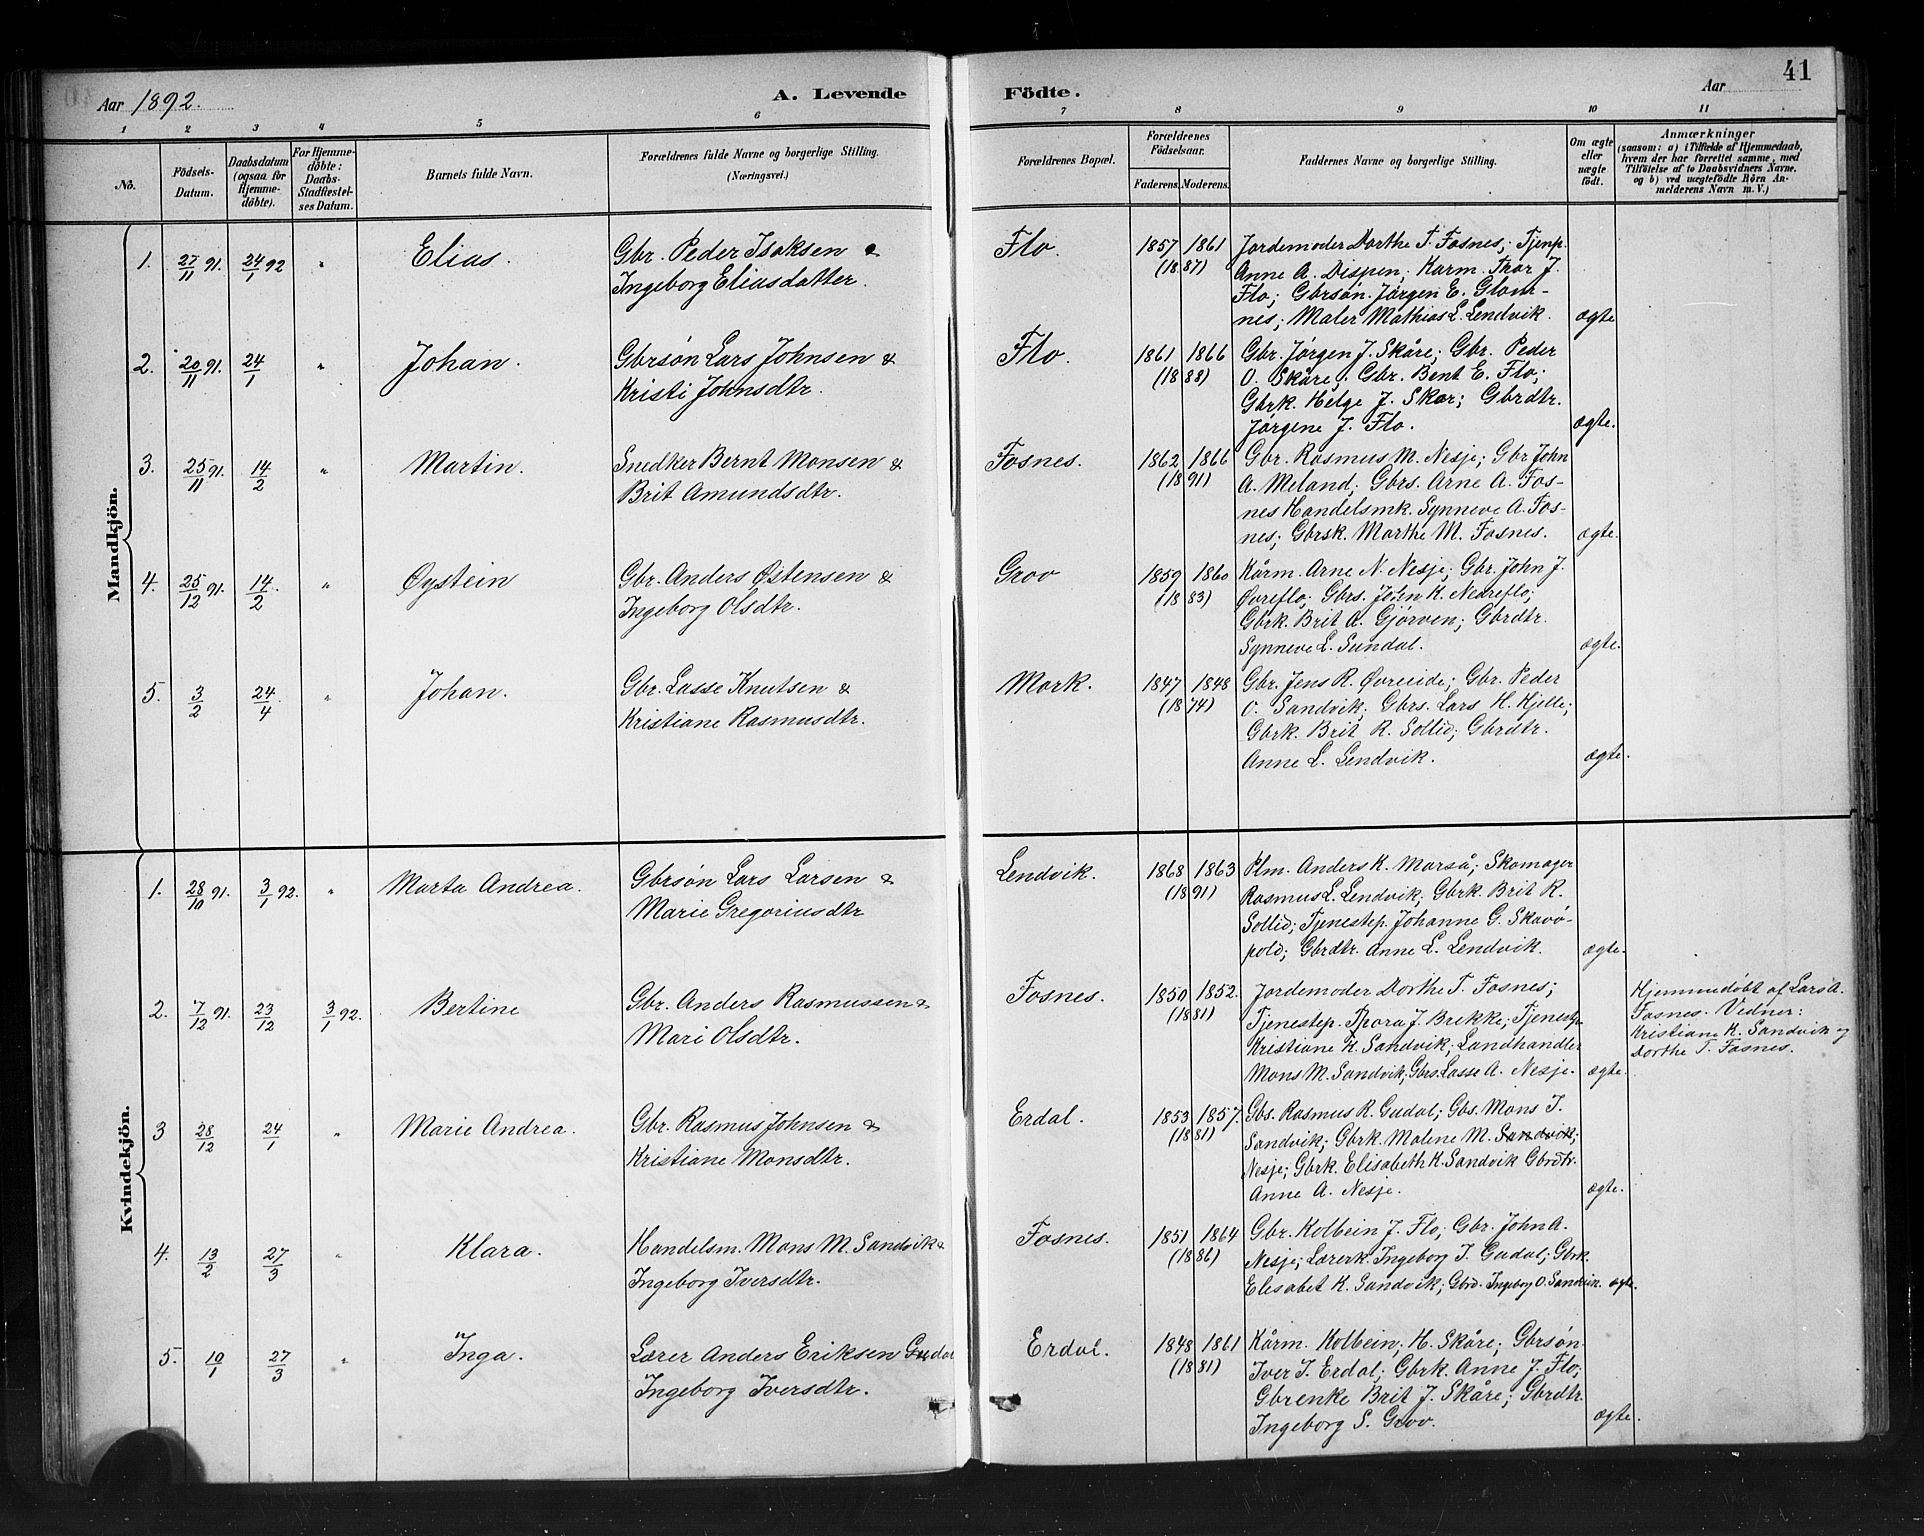 41
Aar 1892.
A. Levende Födte.
Aar
1 2 3 4 5 6 7 8 9 10 11
No.
Födsels-
Datum.
Daabsdatum
(ogsaa for
Hjemme-
döbte).
For Hjemme-
döbte:
Daabs-
Stadfæstel-
ses Datum.
Barnets fulde Navn.
Forældrenes fulde Navne og borgerlige Stilling.
(Næringsvei.)
Forældrenes Bopæl.
Forældrenes
Födselsaar.
Faderens. Moderens.
Faddernes Navne og borgerlige Stilling.
Om ægte
eller
uægte
födt.
Anmærkninger
(saasom: a) i Tilfælde af Hjemmedaab,
hvem der har forrettet samme, med
Tilföielse af to Daabsvidners Navne,
og b) ved uægtefödte Börn An-
melderens Navn m. V.)
Mandkjön.
1. 27/11 91. 24/1 92 " Elias.
Gbr. Peder Isaksen &
Ingeborg Eliasdatter.
Flo. 1857 1861
(1887)
Jordemoder Dorthe T. Fosnes; Tjenp.
Anne A. Dispen; Karm. Thor J.
Flo; Gbrsøn. Jørgen E. Glom-
nes; Maler Mathias L. Lendvik. ægte
2. 20/11 91. 24/1 " Johan.
Gbrsøn Lars Johnsen &
Kristi Johnsdtr.
Flo. 1861 1866
(1888)
Gbr. Jørgen J. Skåre; Gbr. Peder
O. Skåre; Gbr. Bent E. Flo;
Gbrk. Helge J. Skår; Gbrdtr.
Jørgine J. Flo. ægte.
3. 25/11 91. 14/2 " Martin.
Snedker Bernt Monsen &
Brit Amundsdtr.
Fosnes. 1862 1866
(1891)
Gbr. Rasmus M. Nesje; Gbr John
A. Meland; Gbrs. Arne A. Fos-
nes Handelsmk. Synneve A. Fos-
nes; Gbrsk. Marthe M. Fosnes. ægte.
4. 25/12 91. 14/2 " Øystein
Gbr. Anders Østensen &
Ingeborg Olsdtr.
Grov 1859 1860
(1883)
Kårm. Arne N. Nesje; Gbr. John J.
Øvreflo; Gbrs. John K. Nedreflo;
Gbrk. Brit A. Gjørven; Gbrdtr.
Synneve L. Sundal. ægte.
5. 3/2 24/4 " Johan.
Gbr. Lasse Knutsen &
Kristiane Rasmusdtr.
Mork. 1847 1848
(1874)
Gbr. Jens R. Øvreeide; Gbr. Peder
O. Sandvik; Gbrs. Lars H. Hjelle;
Gbrk. Brit R. Sollid; Gbrdtr.
Anne L. Lendvik. ægte.
Kvindekjön.
1. 28/10 91. 3/1 92. " Marta Andrea.
Gbrsøn Lars Larsen &
Marie Gregoriusdtr
Lendvik. 1868 1863
(1891)
Plm. Anders K. Marså; Skomager
Rasmus L. Lendvik; Gbrk. Brit R.
Sollid; Tjenestep. Johanne G. Skavø-
pold; Gbrdtr. Anne L. Lendvik. ægte.
2. 7/12 91. 23/12 3/1 92. Bertine
Gbr. Anders Rasmussen &
Mari Olsdtr.
Fosnes. 1850 1852.
(1881)
Jordemoder Dorthe T. Fosnes;
Tjenestep. Thora J. Brekke; Tjenestp
Kristiane K. Sandvik; Landhandler
Mons M. Sandvik; Gbrs. Lasse A. Nesje. ægte.
Hjemmedøbt af Lars A.
Fosnes. Vidner:
Kristiane K. Sandvik og
Dorthe T. Fosnes.
3 28/12 24/1 " Marie Andrea.
Gbr. Rasmus Johnsen &
Kristiane Monsdtr.
Erdal. 1853 1857.
(1881)
Gbs. Rasmus R. Gudal; Gbs. Mons I.
Sandvik; Gbrk. Malene M. Sandvik;
Nesje; Gbrk. Elisabeth K. Sandvik Gbrdtr.
Anne A. Nesje. ægte.
4. 13/2 27/3 " Klara.
Handelsm. Mons M. Sandvik &
Ingeborg Iversdtr.
Fosnes. 1851 1864
(1886)
Gbr. Kolbein J. Flo; Gbr. John A.
Nesje; Lærerk. Ingeborg I. Gudal; Gbrk.
Elisabet K. Sandvik; Gbrd. Ingeborg O. Sandvik. ægte.
5. 10/1 27/3 " Inga.
Lærer Anders Eriksen Gudal
Ingeborg Iversdtr.
Erdal. 1848 1861
(1881)
Kårm. Kolbein, H. Skåre; Gbrsøn
Iver I. Erdal; Gbrk. Anne J. Flo;
Gbrenke Brit J. Skåre; Gbrdtr.
Ingeborg S. Grov. ægte.